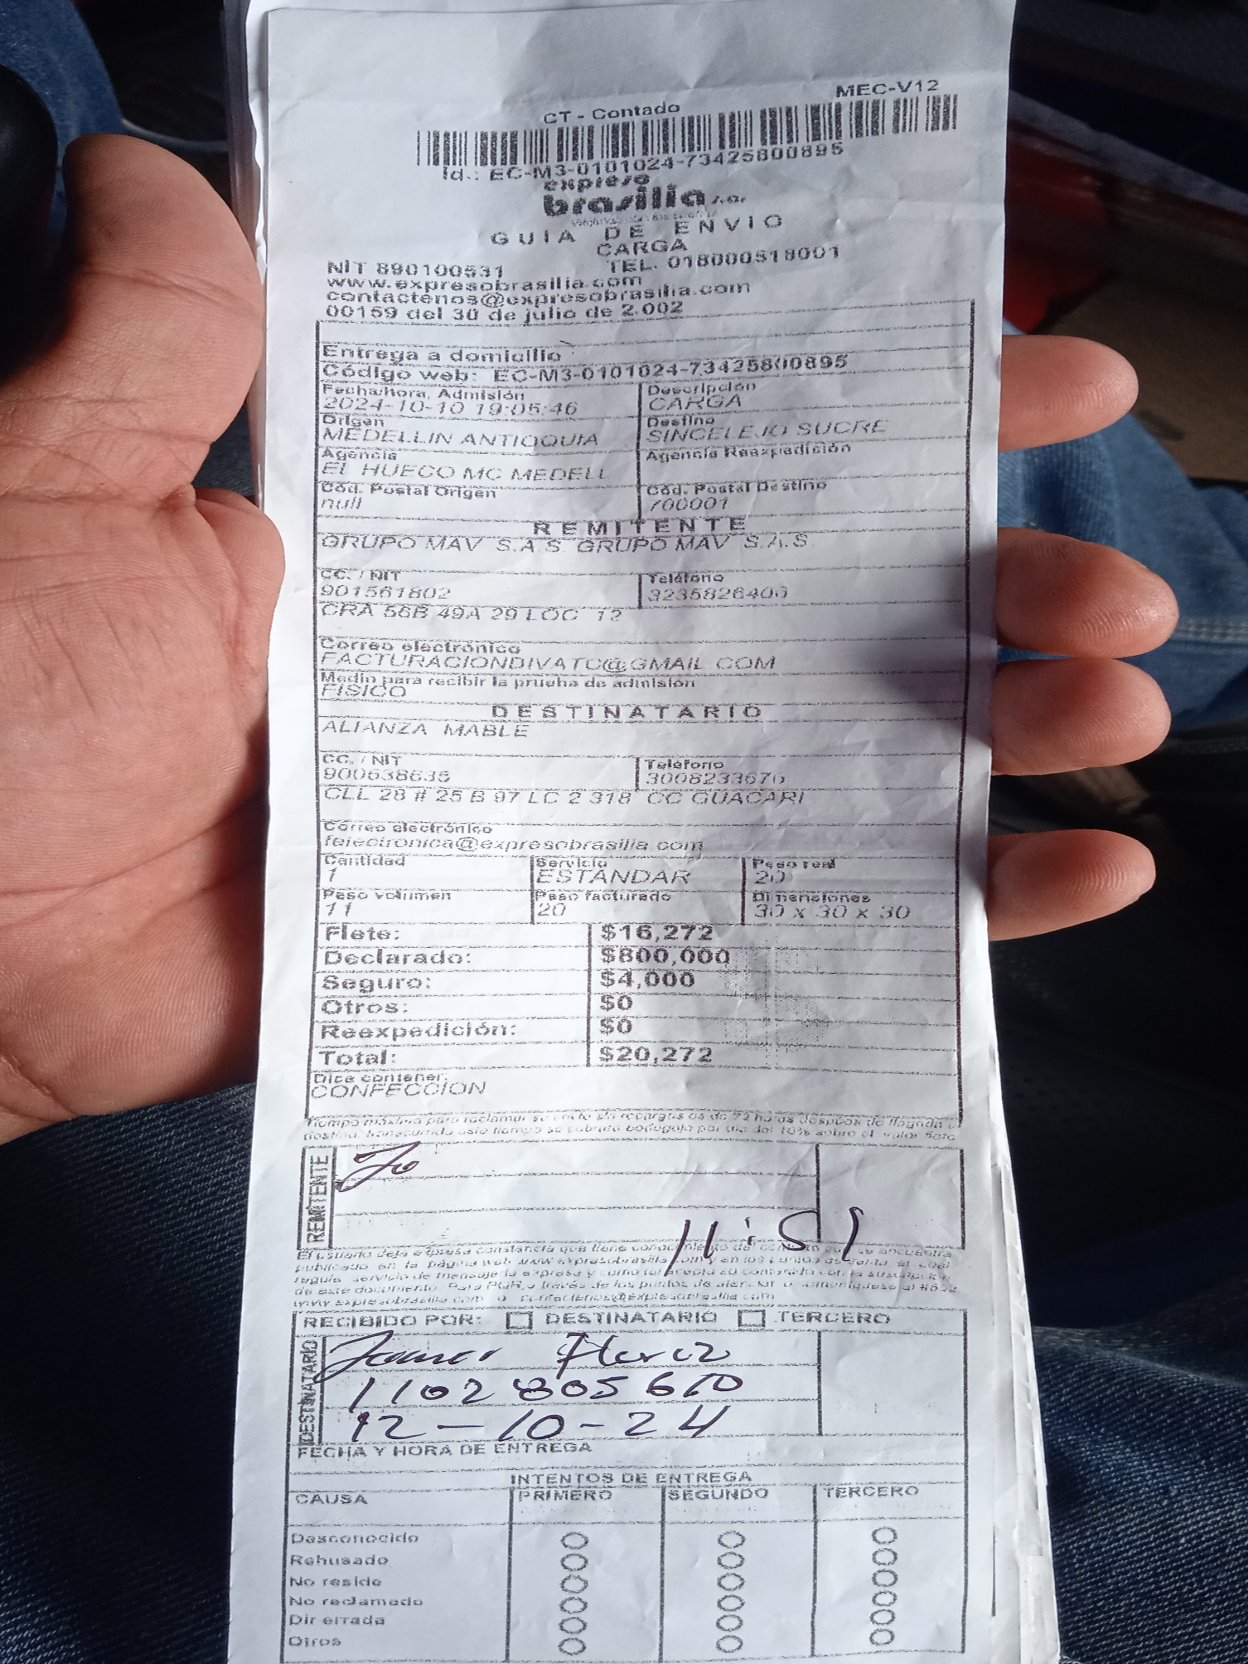 MEC-V12
CT - Contado
Id.: EC-M3-0101024-73425800895
expreso
brasilia s.a.
GUIA DE ENVIO
CARGA
NIT 890100531 TEL. 018000518001
www.expresobrasilia.com
contactenos@expresobrasilia.com
00159 del 30 de julio de 2.002
Entrega a domicilio
Código web: EC-M3-0101024-73425800895
Fecha/hora. Admisión Descripción
2024-10-10 19:05:46 CARGA
Origen Destino
MEDELLIN ANTIOQUIA SINCELEJO SUCRE
Agencia Agencia Reexpedición
EL HUECO MC MEDELL
Cód. Postal Origen Cód. Postal Destino
null 700001
REMITENTE
GRUPO MAV S.A.S. GRUPO MAV S.A.S
CC. / NIT Teléfono
901561802 3235826400
CRA 56B 49A 29 LOC 12
Correo electrónico
FACTURACIONDIVATC@GMAIL.COM
Medio para recibir la prueba de admisión
FISICO
DESTINATARIO
ALIANZA MABLE
CC. / NIT Teléfono
900638635 3008233670
CLL 28 # 25 B 97 LC 2 318 CC GUACARI
Correo electrónico
felectronica@expresobrasilia.com
Cantidad Servicio Peso real
1 ESTANDAR 20
Peso volumen Peso facturado Dimensiones
11 20 30 x 30 x 30
Flete: $16,272
Declarado: $800,000
Seguro: $4,000
Otros: $0
Reexpedición: $0
Total: $20,272
Dice contener:
CONFECCION
Tiempo máximo para reclamar su envío sin recargos es de 72 horas después de llegada a
REMITENTE
11:51
El usuario deja expresa constancia que tiene conocimiento del
publicado en la página web www.expresobrasilia.com y en los puntos de venta al cual
de este documento. Para PQR a través de los puntos de
www.expresobrasilia.com o contactenos@expresobrasilia.com
RECIBIDO POR: DESTINATARIO TERCERO
DESTINATARIO
1102805610
12-10-24
FECHA Y HORA DE ENTREGA
INTENTOS DE ENTREGA
CAUSA PRIMERO SEGUNDO TERCERO
Desconocido
Rehusado
No reside
No reclamado
Dir errada
Otros